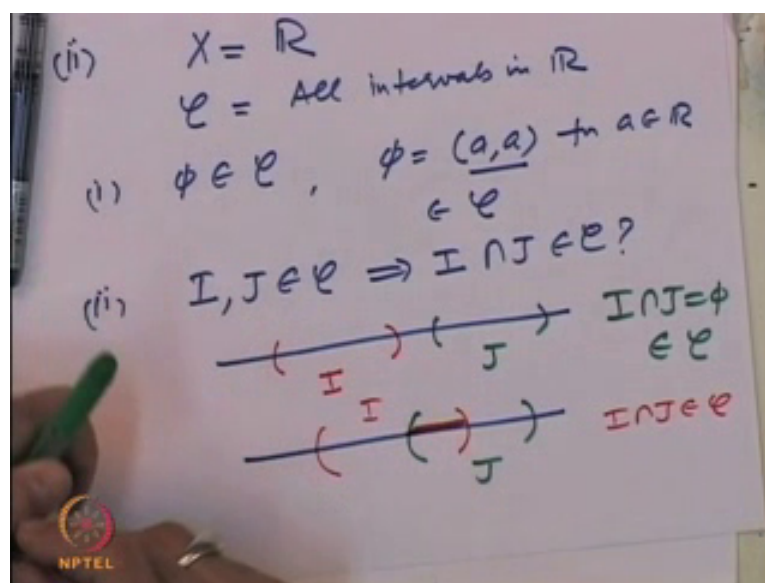 (ii) X = ℝ
𝒞 = All intervals in ℝ
(i) ϕ ∈ 𝒞, ϕ = (a,a) for a ∈ ℝ
∈ 𝒞
(ii) I, J ∈ 𝒞 ⇒ I ∩ J ∈ 𝒞?
( ) ( ) I ∩ J = ϕ
I J ∈ 𝒞
I
( ( ) ) I ∩ J ∈ 𝒞
J
NPTEL